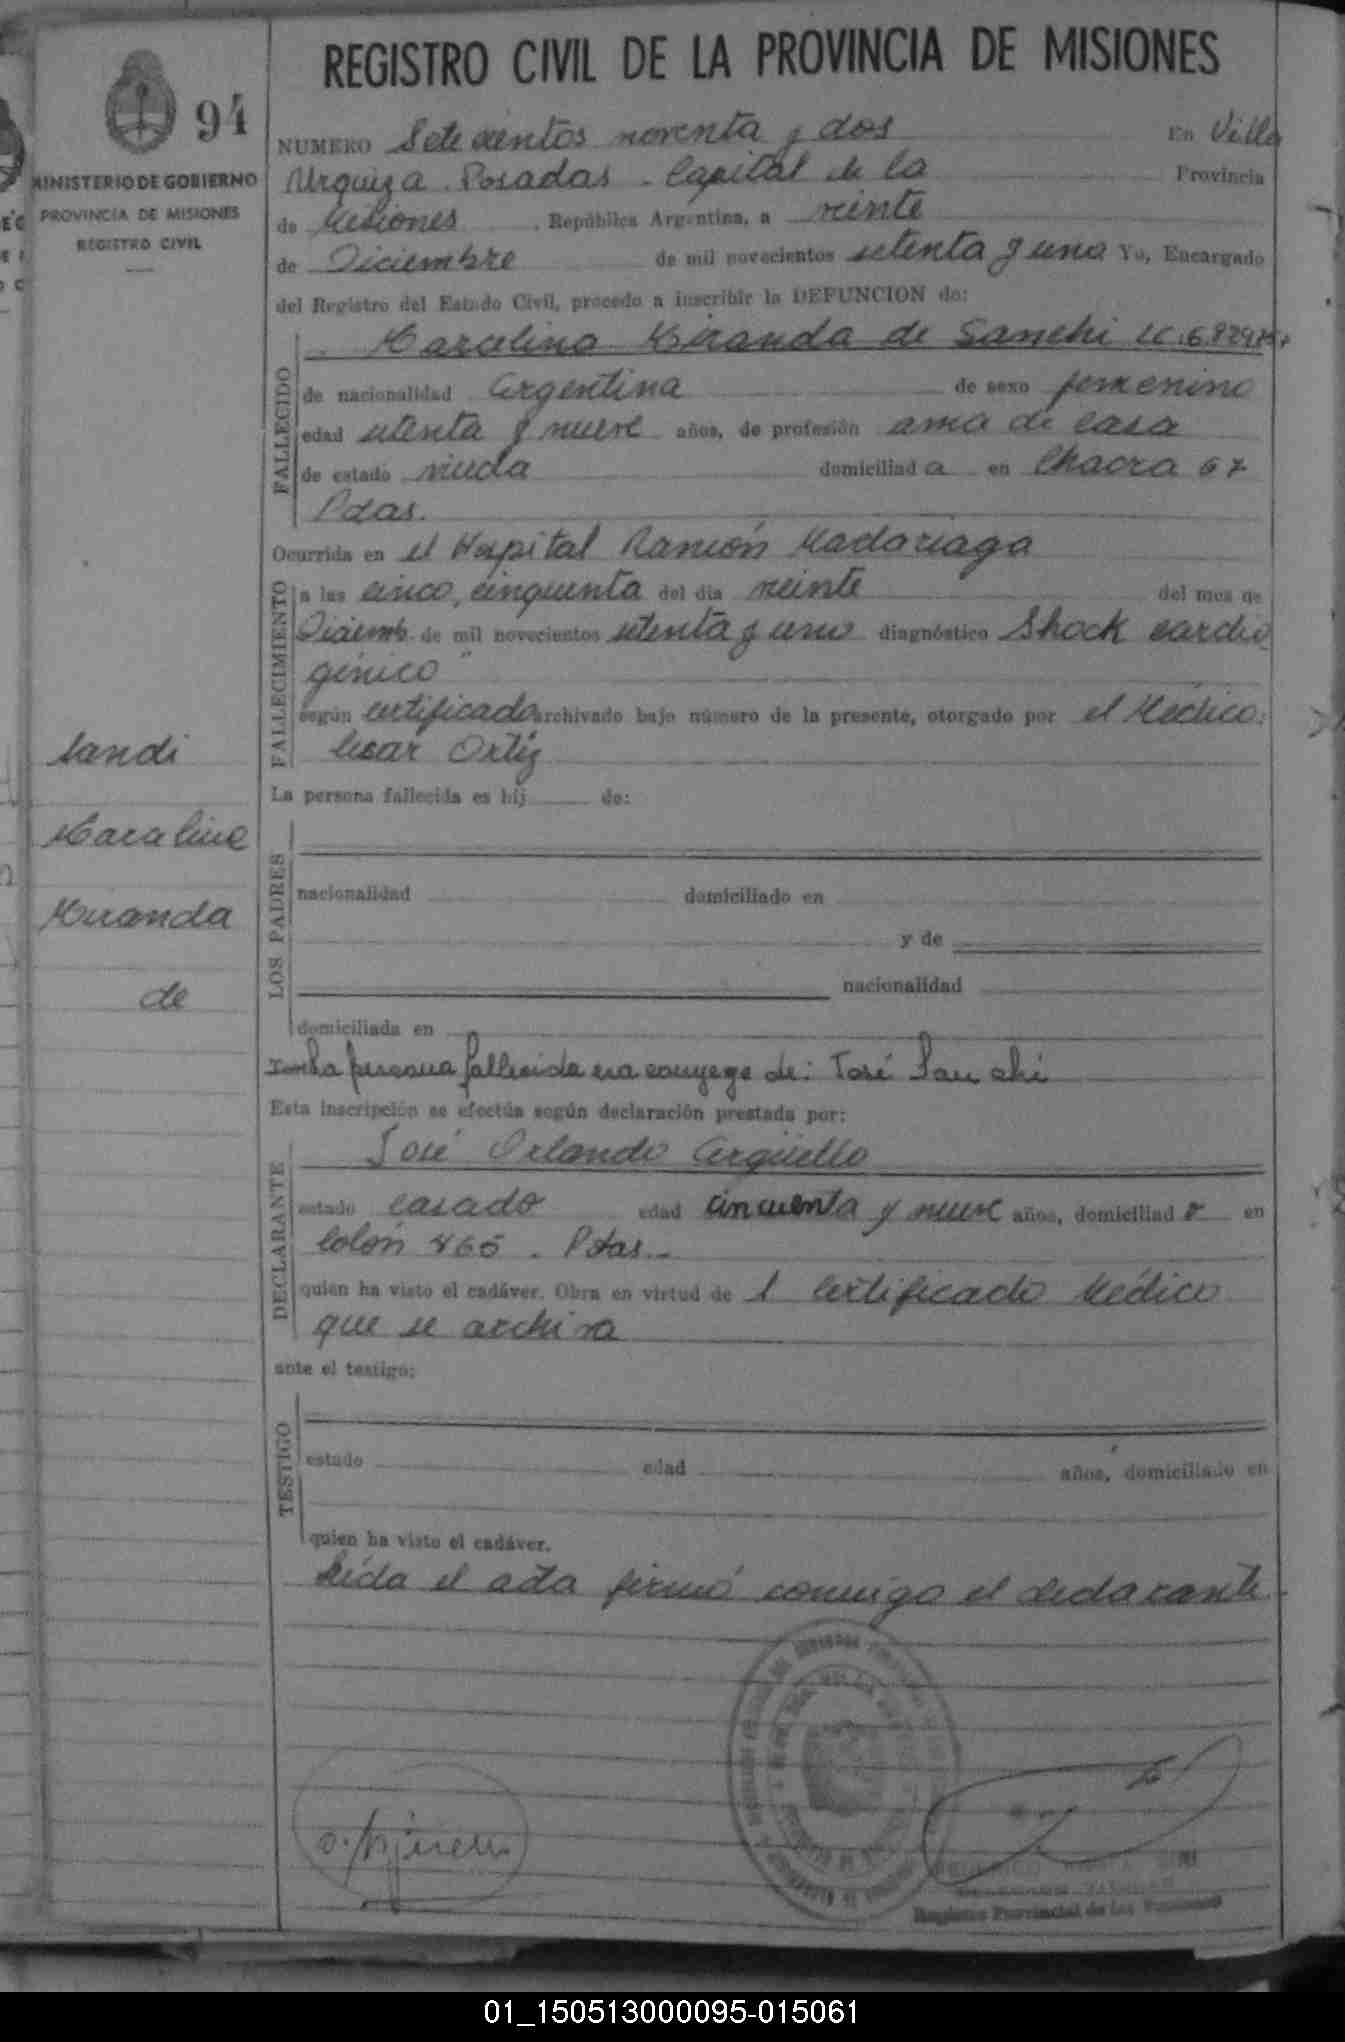 REGISTRO CIVIL DE LA PROVINCIA DE MISIONES
94
MINISTERIO DE GOBIERNO
PROVINCIA DE MISIONES
REGISTRO CIVIL
NUMERO Setecientos noventa y dos En Villa
Urquiza. Posadas. Capital de la Provincia
de Misiones, República Argentina, a veinte
de Diciembre de mil novecientos setenta y uno Yo, Encargado
del Registro del Estado Civil, procedo a inscribir la DEFUNCION de:
FALLECIDO
Marcelina Miranda de Sanchi LC.
de nacionalidad Argentina de sexo femenino
edad setenta y nueve años, de profesión ama de casa
de estado viuda domiciliad a en Chacra 67
Pdas.
Ocurrida en el Hospital Ramón Madariaga
FALLECIMIENTO
a las cinco, cinquenta del día veinte del mes de
Diciemb. de mil novecientos setenta y uno diagnóstico Shock cardio
génico"
según certificado archivado bajo número de la presente, otorgado por el Médico:
Cesar Ortiz
Sandi
Marceline
Miranda
de
La persona fallecida es hij de:
LOS PADRES
nacionalidad domiciliado en
y de
nacionalidad
domiciliada en
La persona fallecida era conyege de: José Sanchi
Esta inscripción se efectúa según declaración prestada por:
DECLARANTE
José Orlando Argüello
estado casado edad cincuenta y nueve años, domiciliad o en
Colón 465. Pdas.
quien ha visto el cadáver. Obra en virtud de 1 Certificado Médico
que se archiva
ante el testigo:
TESTIGO
estado edad años, domiciliado en
quien ha visto el cadáver.
Leída el acta firmó conmigo el declarante
Registro Provincial de las Personas
01_150513000095-015061